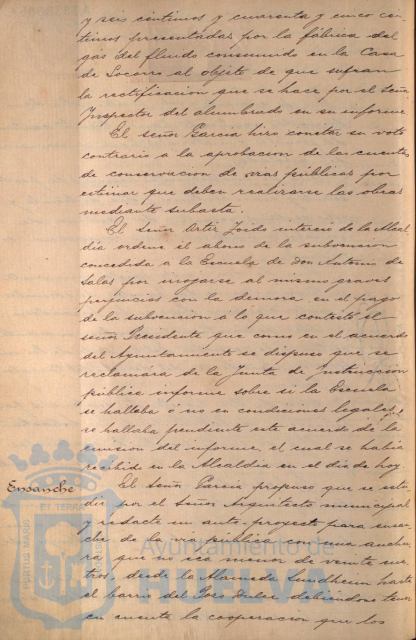 y seis centimos y cuarenta y cinco cen-
timos presentadas por la fábrica del
gas del fluido consumido en la Casa
de Socorro al objeto de que sufran
la rectificacion que se hace por el Señor
Inspector del alumbrado en su informe
El señor Garcia hizo constar su voto
contrario a la aprobacion de las cuentas
de conservacion de vias públicas por
estimar que deben realizarse las obras
mediante subasta.
El Señor Ortiz interesó de la Alcal
dia ordene el abono de la subvencion
concedida a la Escuela de Don Antonio de
Salas por irrogarse al mismo graves
perjuicios con la demora en el pago
de la subvencion á lo que contestó el
señor Presidente que como en el acuerdo
del Ayuntamiento se dispuso que se
reclamára de la Junta de Instruccion
pública informe sobre si la Escuela
se hallaba ó no en condiciones legales,
se hallaba pendiente este acuerdo de la
emision del informe, el cual se habia
recibido en la Alcaldia en el dia de hoy.
Ensanche
El Señor Garcia propuso que se estu
die por el Señor Arquitecto municipal
y redacte un ante-proyecto para ensan
che de la via pública con una anchu
ra que no sea menos de veinte me
tros, desde la Alameda Sundheim hasta
el barrio del Pozo Dulce debiendose tener
en cuenta la cooperacion que los
Ayuntamiento de
HUELVA
PORTUS MARIS
ET TERRAE
CUSTODIA